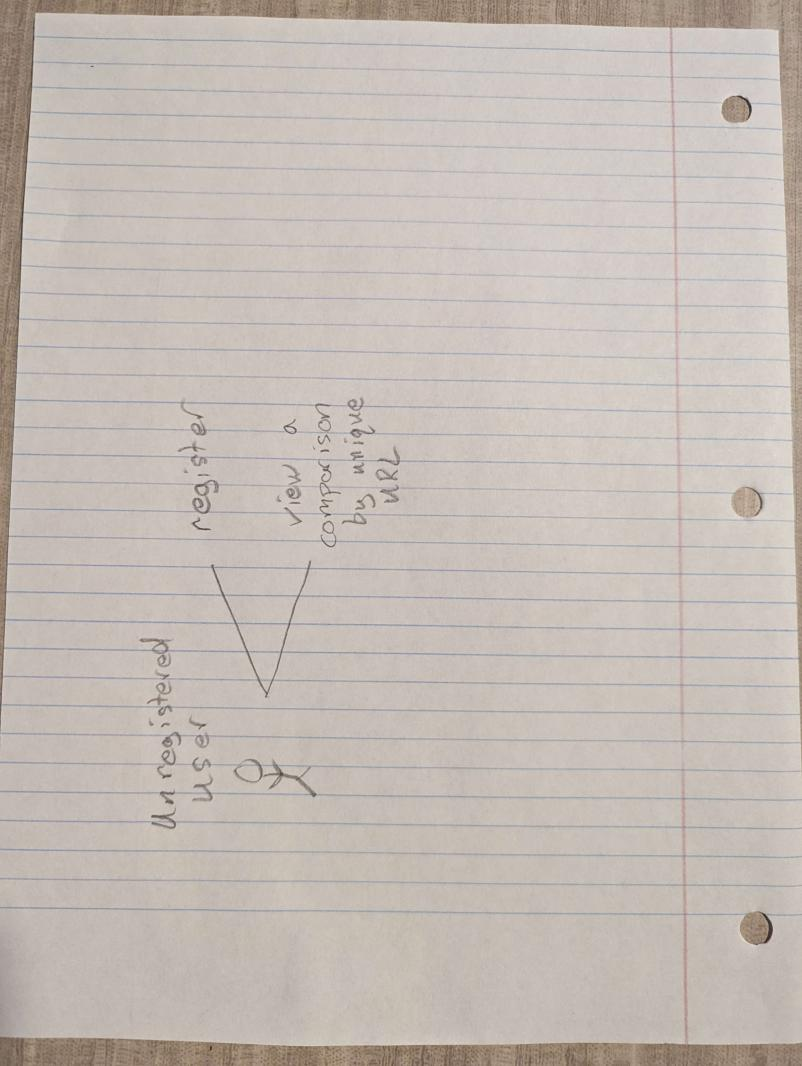 Unregistered
user
register
view a
comparison
by unique
URL